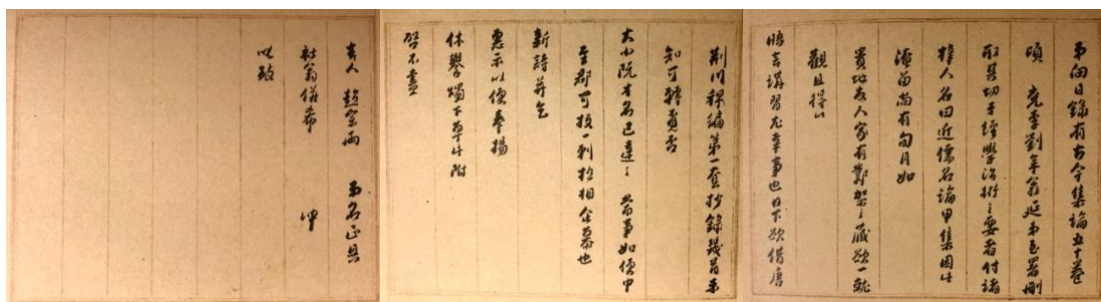 弟向日錄有古今集論五十卷
頃 兗李劉年翁延弟至署刪
取其切于經學治術之要者付諸
梓人名曰近儒名論甲集因此
淹留尚有旬月如
貴地友人家有鄴架之藏欲一就
觀且得以
晤言講習尤幸事也目下欲借唐
荊川稗編第一套抄錄幾首未
知可轉責否
大小阮才名已達之 當事如便中
至郡可投一刺於相念慕也
新詩并乞
惠示以便奉揚
休譽燭下草此附
啓不盡
友人 彭泰而 弟名正具
社翁併希 呼
此致